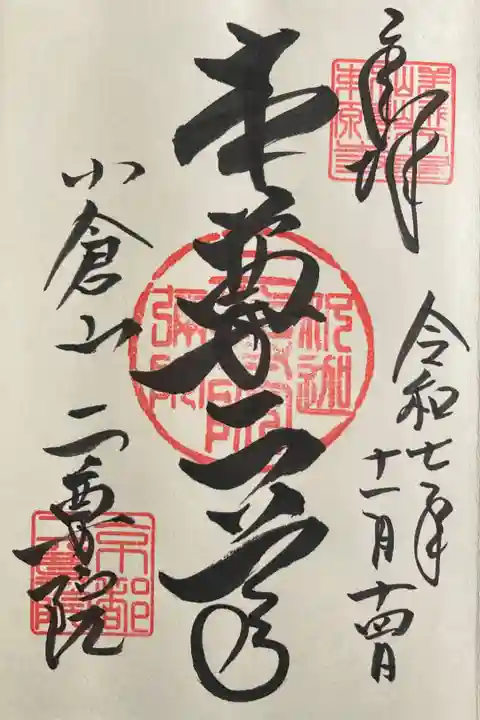 奉拝
令和七年
十一月十四日
本尊二尊
小倉山 二尊院
釈迦
京都
二尊院